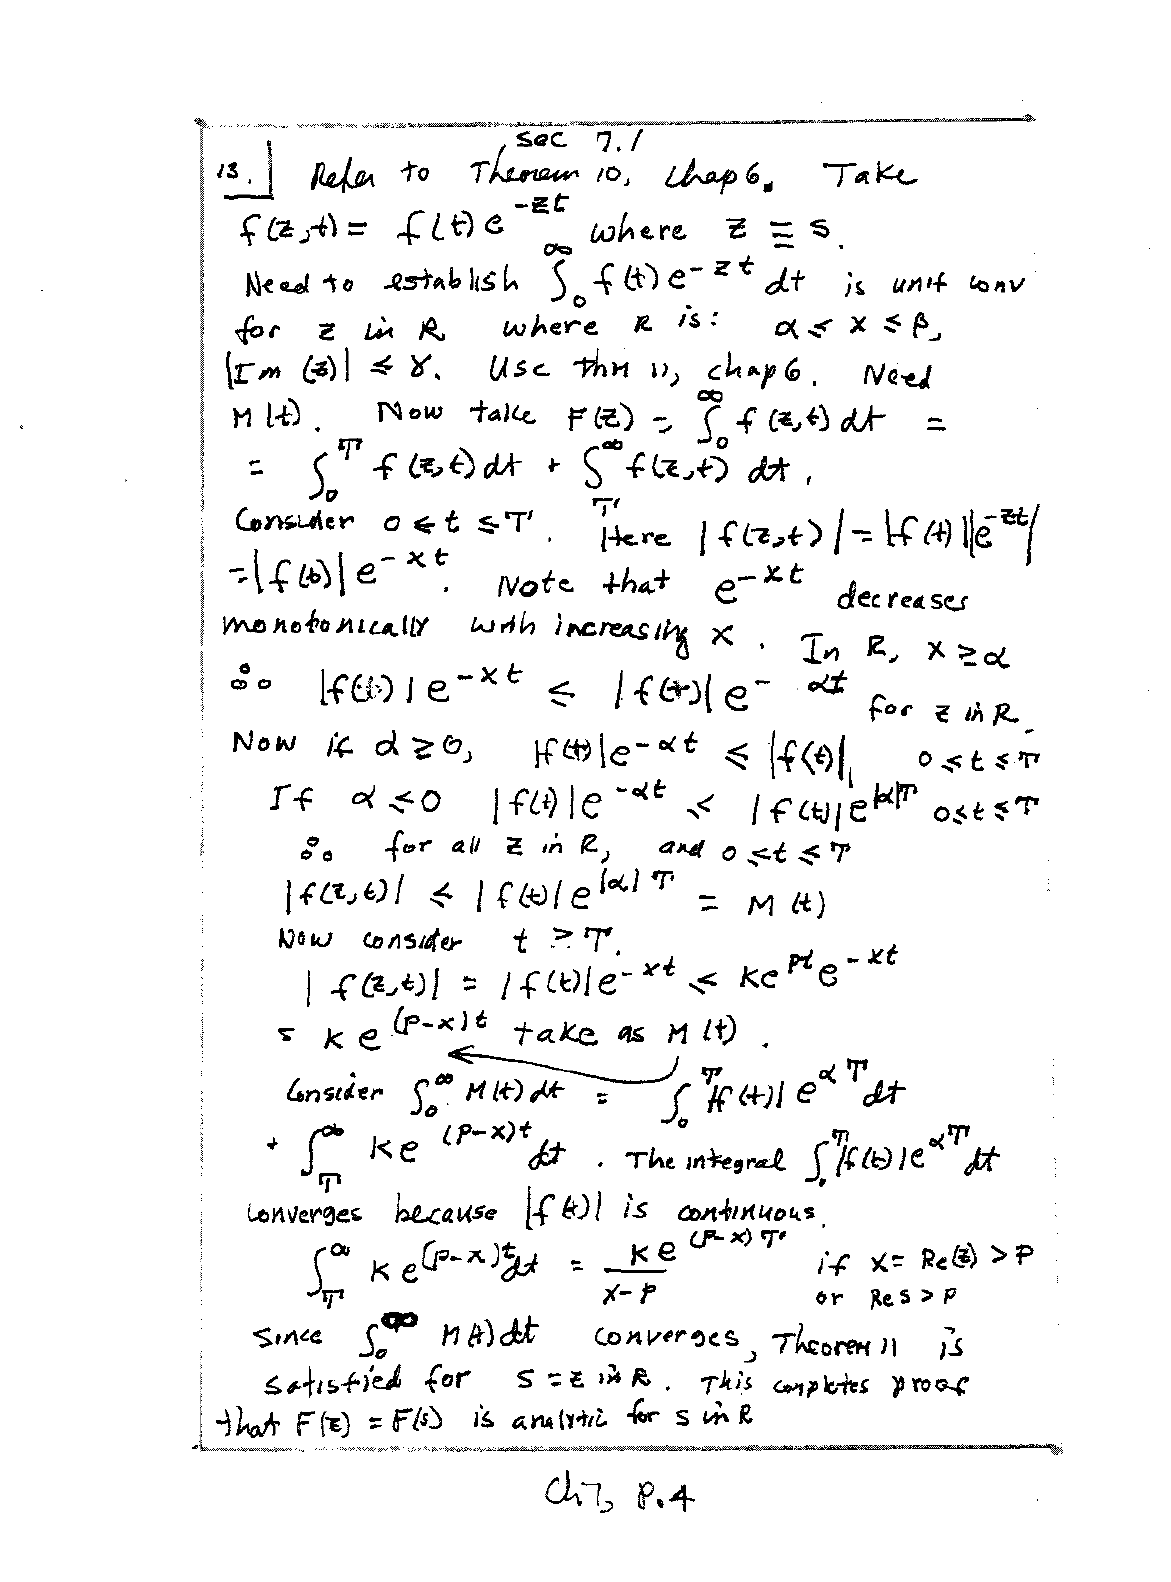 sec 7.1
13. Refer to Theorem 10, Chap 6. Take
f(z,t) = f(t)e^{-zt} where z ≡ s.
Need to establish ∫_0^∞ f(t)e^{-zt} dt is unif conv
for z in R where R is: α ≤ x ≤ β,
|Im(z)| ≤ γ. Use thm 11, chap 6. Need
M(t). Now take F(z) = ∫_0^∞ f(z,t) dt =
= ∫_0^T f(z,t) dt + ∫_T^∞ f(z,t) dt,
Consider 0 ≤ t ≤ T. Here |f(z,t)| = |f(t)||e^{-zt}|
= |f(t)| e^{-xt}. Note that e^{-xt} decreases
monotonically with increasing x. In R, x ≥ α
∴ |f(t)| e^{-xt} ≤ |f(t)| e^{-αt} for z in R.
Now if α ≥ 0, |f(t)|e^{-αt} ≤ |f(t)|, 0 ≤ t ≤ T
If α ≤ 0 |f(t)|e^{-αt} ≤ |f(t)|e^{|α|T} 0 ≤ t ≤ T
∴ for all z in R, and 0 ≤ t ≤ T
|f(z,t)| ≤ |f(t)|e^{|α|T} = M(t)
Now consider t ≥ T.
|f(z,t)| = |f(t)|e^{-xt} ≤ ke^{pt}e^{-xt}
= ke^{(p-x)t} take as M(t).
Consider ∫_0^∞ M(t) dt = ∫_0^T |f(t)| e^{αT} dt
+ ∫_T^∞ ke^{(p-x)t} dt. The integral ∫_0^T |f(t)|e^{αT} dt
converges because |f(t)| is continuous.
∫_T^∞ ke^{(p-x)t} dt = ke^{(p-x)T}/(x-p) if x = Re(z) > p
or Re s > p
Since ∫_0^∞ M(t) dt converges, Theorem 11 is
satisfied for s = z in R. This completes proof
that F(z) = F(s) is analytic for s in R
Ch 7, p.4